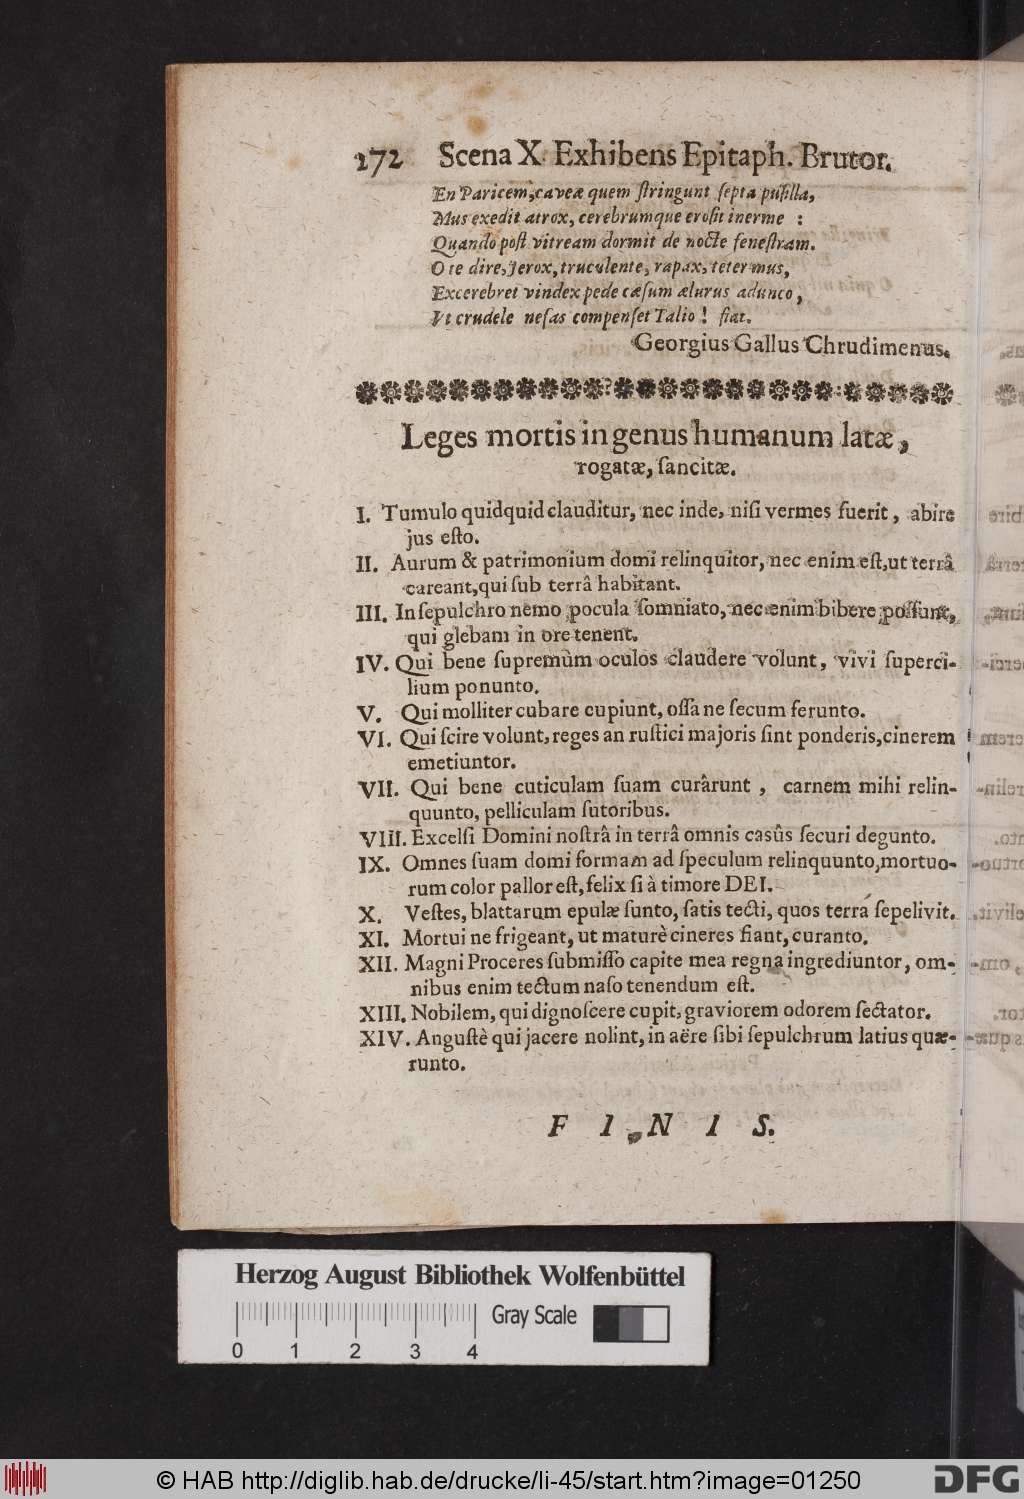 272 Scena X. Exhibens Epitaph. Brutor.
En Paricem, caveæ quem ſtringunt ſepta puſilla,
Mus exedit atrox, cerebrumque eroſit inerme :
Quando poſt vitream dormit de nocte feneſtram.
O te dire, ferox, truculente, rapax, teter mus,
Excerebret vindex pede cæſum ælurus adunco,
Ut crudele nefas compenſet Talio! fiat.
Georgius Gallus Chrudimenus.
Leges mortis in genus humanum latæ,
rogatæ, ſancitæ.
I. Tumulo quidquid clauditur, nec inde, niſi vermes fuerit, abire
jus eſto.
II. Aurum & patrimonium domi relinquitor, nec enim eſt, ut terrâ
careant, qui ſub terrâ habitant.
III. In ſepulchro nemo pocula ſomniato, nec enim bibere poſſunt,
qui glebam in ore tenent.
IV. Qui bene ſupremùm oculos claudere volunt, vivi ſuperci-
lium ponunto.
V. Qui molliter cubare cupiunt, oſſa ne ſecum ferunto.
VI. Qui ſcire volunt, reges an ruſtici majoris ſint ponderis, cinerem
emetiuntor.
VII. Qui bene cuticulam ſuam curârunt, carnem mihi relin-
quunto, pelliculam ſutoribus.
VIII. Excelſi Domini noſtrâ in terrâ omnis casûs ſecuri degunto.
IX. Omnes ſuam domi formam ad ſpeculum relinquunto, mortuo-
rum color pallor eſt, felix ſi à timore DEI.
X. Veſtes, blattarum epulæ ſunto, ſatis tecti, quos terra ſepelivit.
XI. Mortui ne frigeant, ut maturè cineres fiant, curanto.
XII. Magni Proceres ſubmiſſo capite mea regna ingrediuntor, om-
nibus enim tectum naſo tenendum eſt.
XIII. Nobilem, qui dignoſcere cupit, graviorem odorem ſectator.
XIV. Anguſtè qui jacere nolint, in aëre ſibi ſepulchrum latius quæ-
runto.
F I N I S.
Herzog August Bibliothek Wolfenbüttel
Gray Scale
0 1 2 3 4
© HAB http://diglib.hab.de/drucke/li-45/start.htm?image=01250
DFG